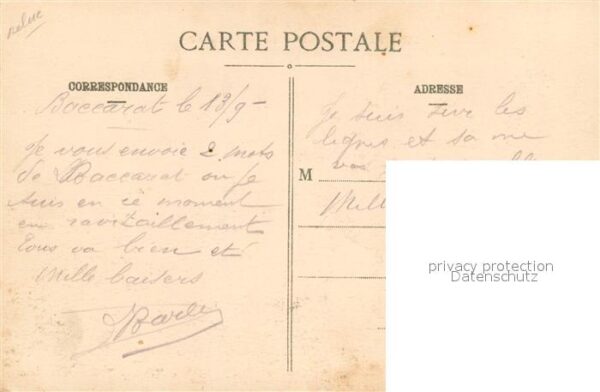 CARTE POSTALE
CORRESPONDANCE
Baccarat le 13/9 -
Je vous envoie 2 mots
de Baccarat ou je
suis en ce moment
en ravitaillement
Tous va bien et
Mille baisers
ADRESSE
Je suis sur les
lignes et sa me
vas
M
Mill
privacy protection
Datenschutz